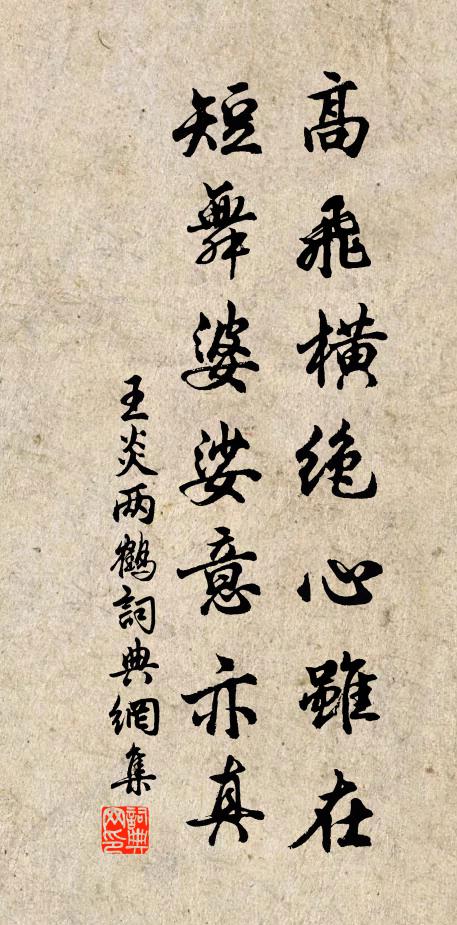 高飛橫絶心雖在
短舞婆娑意亦真
王炎两鶴詞典網集
詞典網印